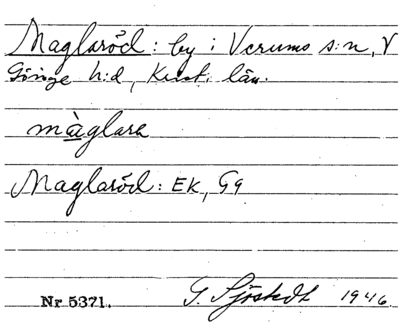 Maglaröd: by i Verums s:n, V
Göinge h:d, Krist. län.
màglara
Maglaröd: EK, Gg
Nr 5371. G. Sjöstedt 1946.